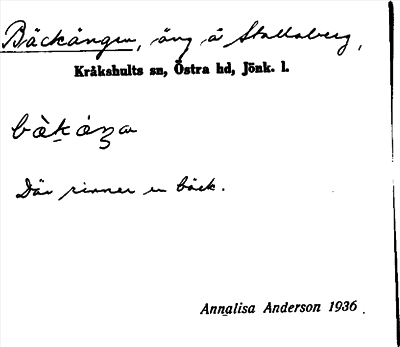 Bäckängen, äng å Stallaberg,
Kråkshults sn, Östra hd, Jönk. l.
Där rinner en bäck.
Annalisa Anderson 1936.